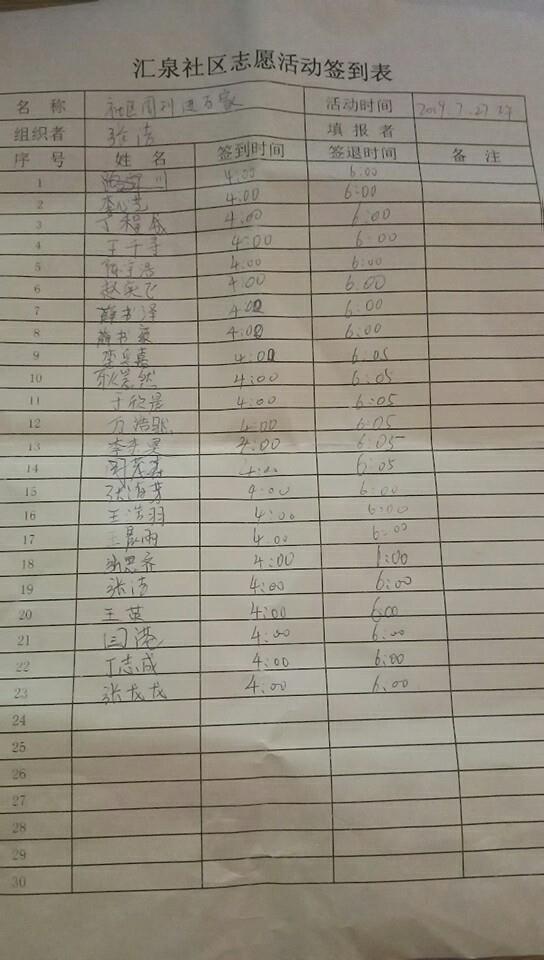 汇泉社区志愿活动签到表
名 称 社区周刊进百家 活动时间 2019.7.27
组织者 张洁 填报者
序 号 姓 名 签到时间 签退时间 备 注
1 4:00 6:00
2 4:00 6:00
3 4:00 6:00
4 王千寻 4:00 6:00
5 陈宇浩 4:00 6:00
6 赵奕飞 4:00 6:00
7 薛书泽 4:00 6:00
8 薛书豪 4:00 6:00
9 4:00 6:05
10 4:00 6:05
11 于欣是 4:00 6:05
12 万浩然 4:00 6:05
13 4:00 6:05
14 4:00 6:05
15 张海芳 4:00 6:00
16 王浩羽 4:00 6:00
17 王晨雨 4:00 6:00
18 张思齐 4:00 6:00
19 张洁 4:00 6:00
20 王英 4:00 6:00
21 闫港 4:00 6:00
22 丁志成 4:00 6:00
23 张龙龙 4:00 6:00
24
25
26
27
28
29
30